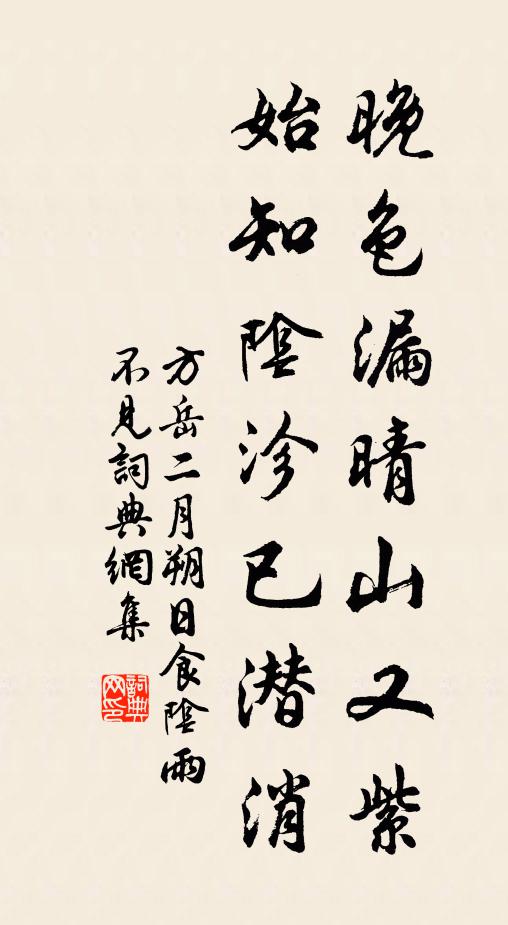 晚色漏晴山又紫
始知陰沴已潜消
方岳二月朔日食陰雨
不見詞典網集
詞典網印